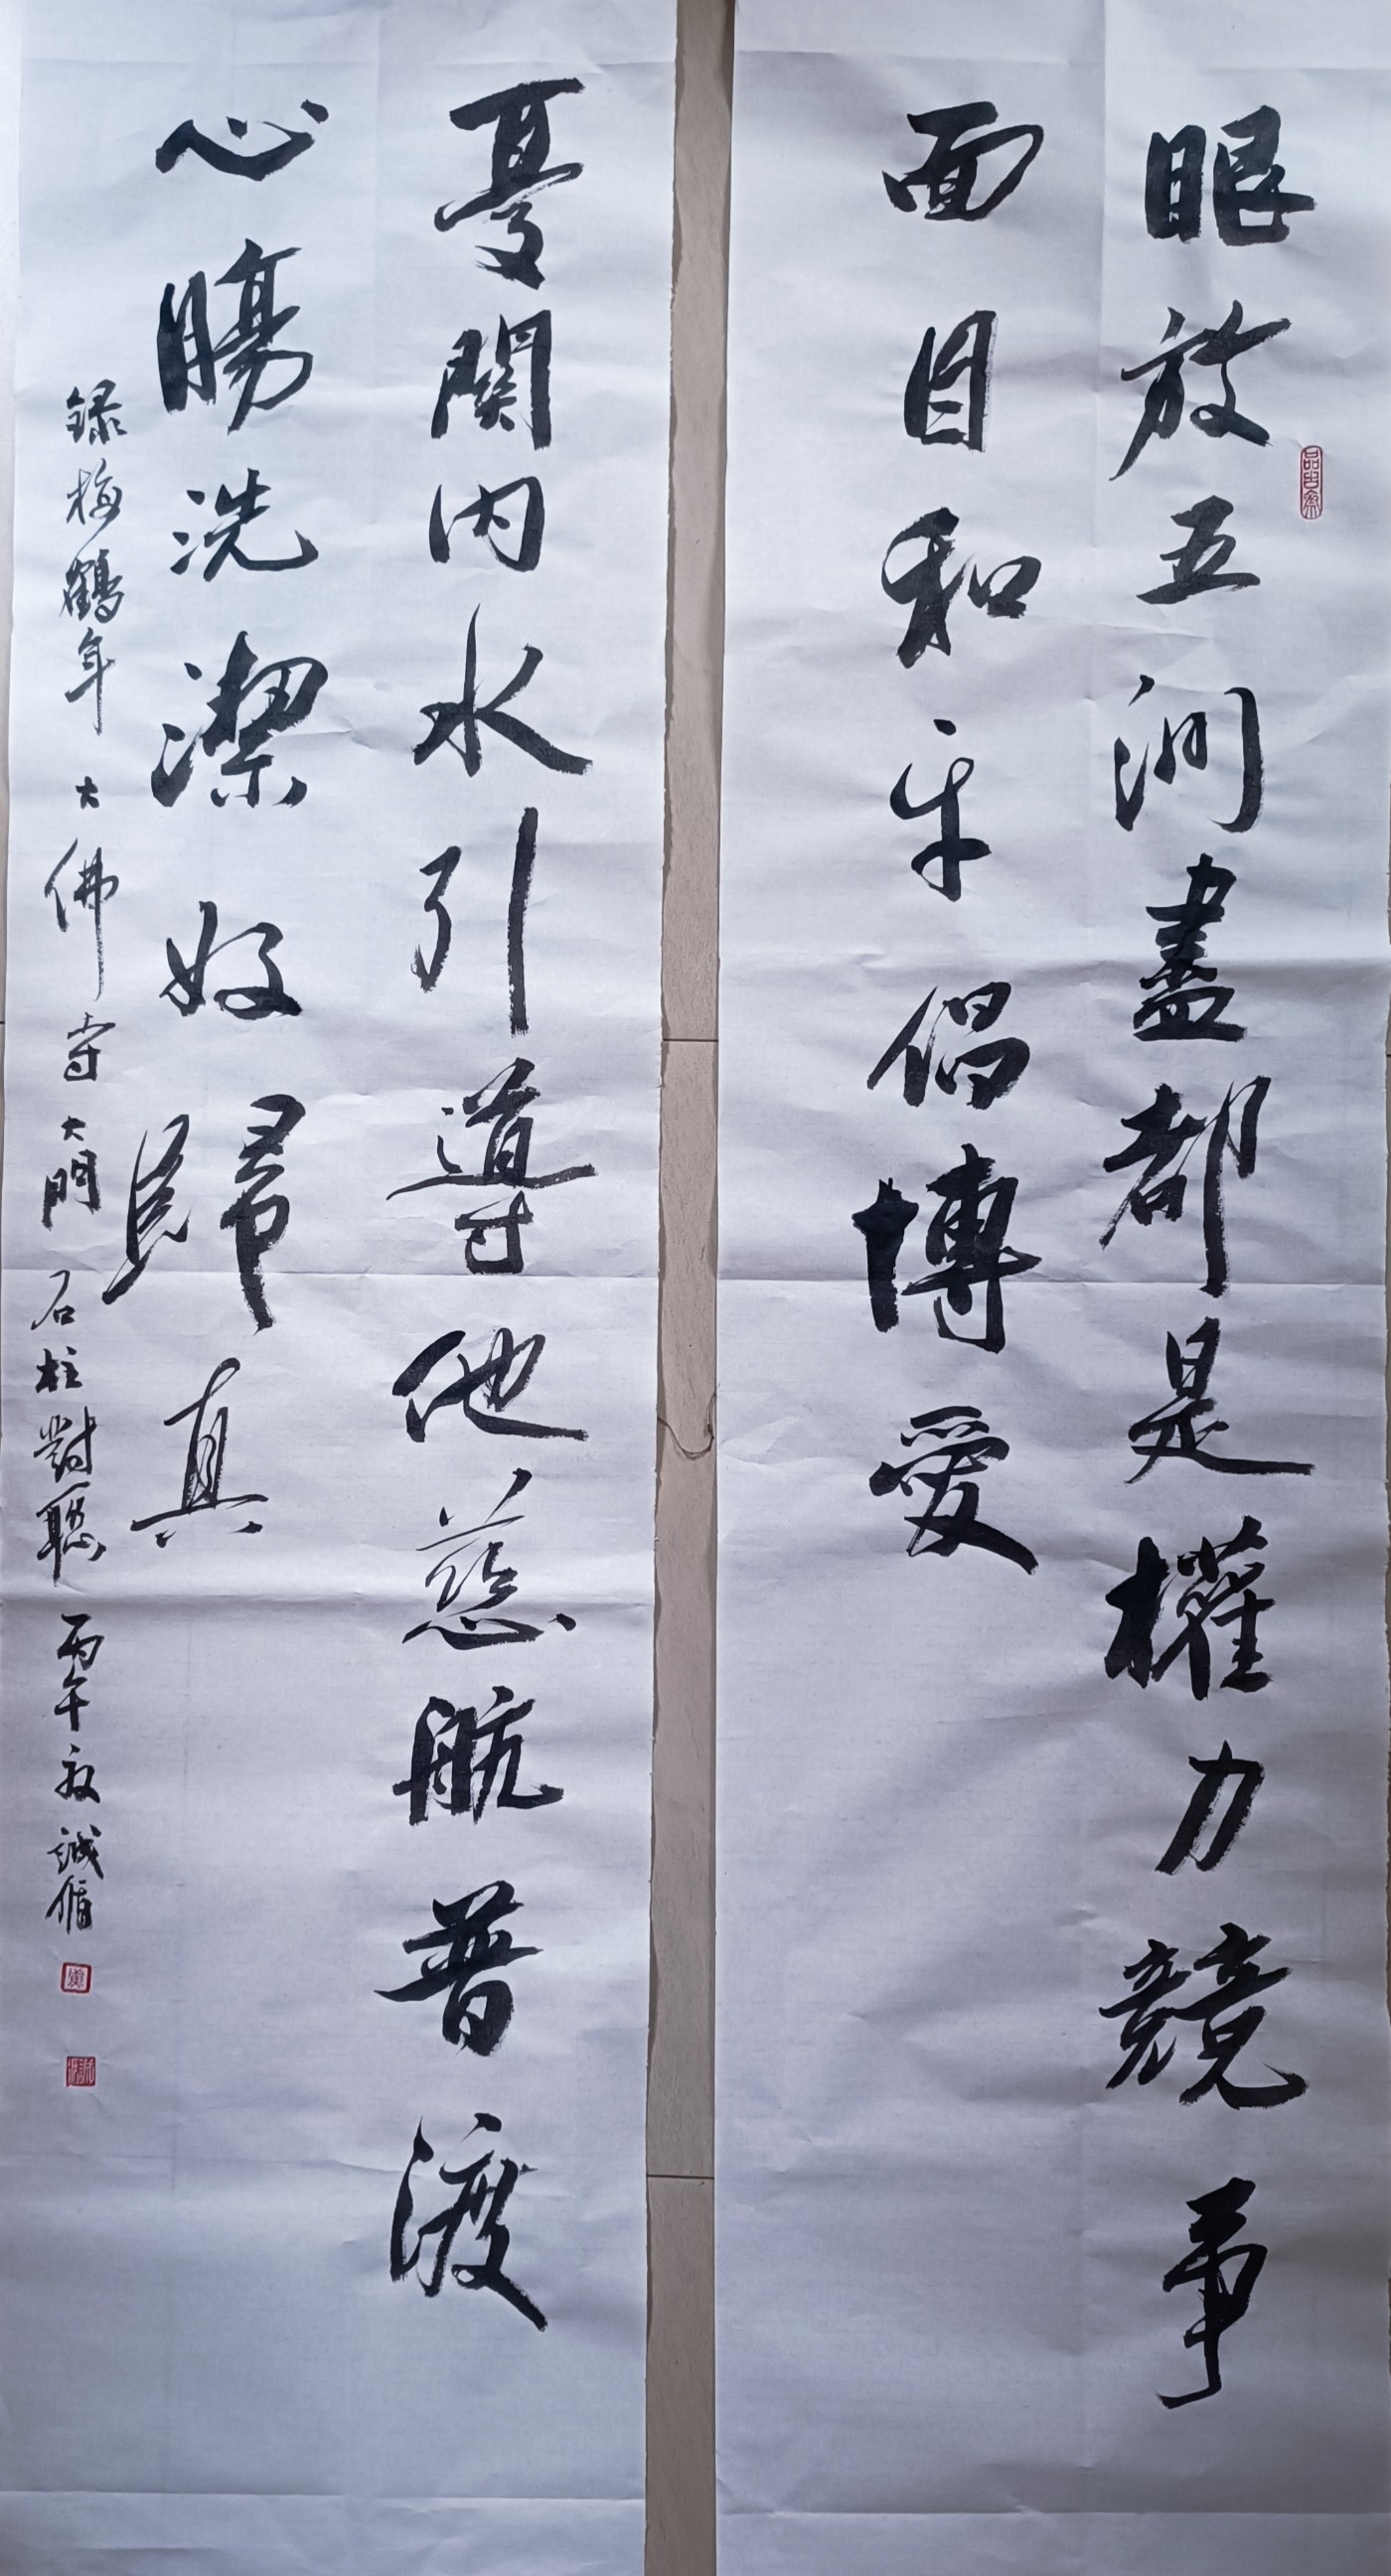 眼放五洲盡都是權力競爭
面目和平倡博愛
關内水引導他慈航普渡
心腸洗潔好歸真
録梅鶴年大佛寺大門石柱對聯 丙午 誠脩